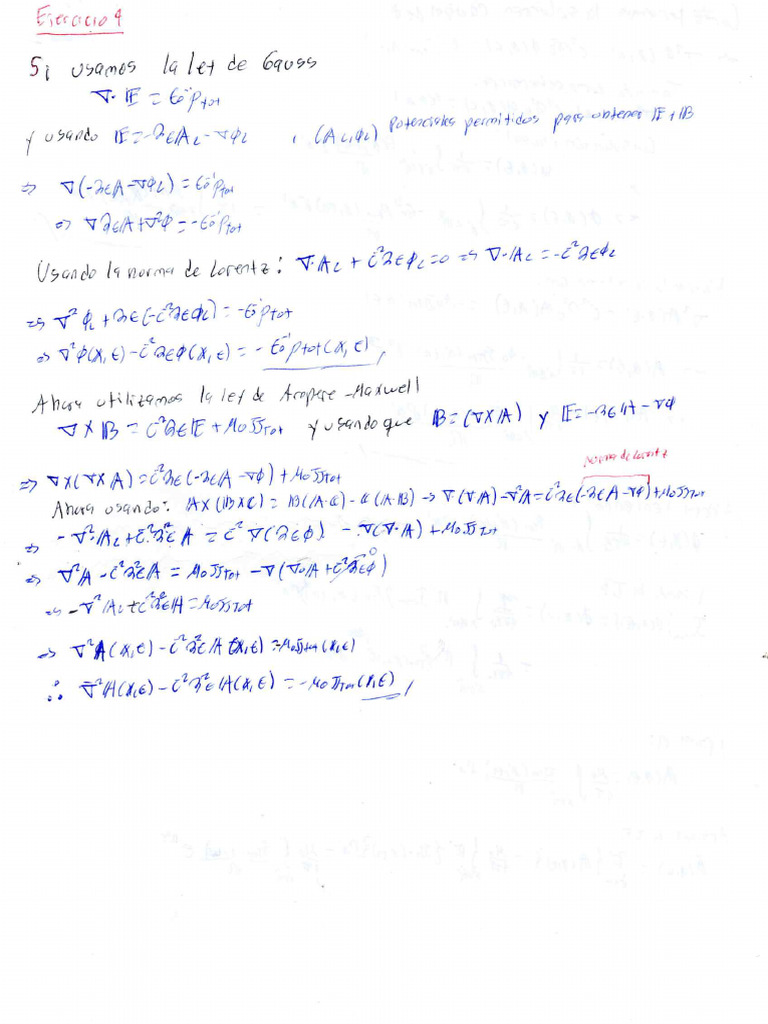 Ejercicio 4
Si usamos la ley de Gauss
∇·𝔼 = ϵ₀⁻¹ρtot
y usando 𝔼 = -∂t𝔸L - ∇ϕL , (𝔸L, ϕL) Potenciales permitidos para obtener 𝔼 + 𝔹
⇒ ∇(-∂t𝔸 - ∇ϕL) = ϵ₀⁻¹ρtot
⇒ ∇∂t𝔸 + ∇²ϕ = -ϵ₀⁻¹ρtot
Usando la norma de Lorentz: ∇·𝔸L + c⁻²∂tϕL = 0 ⇒ ∇·𝔸L = -c⁻²∂tϕL
⇒ ∇²ϕL + ∂t(-c⁻²∂tϕL) = -ϵ₀⁻¹ρtot
⇒ ∇²ϕ(x,t) - c⁻²∂tϕ(x,t) = -ϵ₀⁻¹ρtot(x,t),
Ahora utilizamos la ley de Ampere-Maxwell
∇×𝔹 = c⁻²∂t𝔼 + μ₀𝕁Tot y usando que 𝔹 = (∇×𝔸) y 𝔼 = -∂t𝔸 - ∇ϕ
Norma de Lorentz
⇒ ∇×(∇×𝔸) = c⁻²∂t(-∂t𝔸 - ∇ϕ) + μ₀𝕁Tot
Ahora usando: 𝔸×(𝔹×ℂ) = 𝔹(𝔸·ℂ) - ℂ(𝔸·𝔹) → ∇·(∇·𝔸) - ∇²𝔸 = c⁻²∂t(-∂t𝔸 - ∇ϕ) + μ₀𝕁Tot
⇒ -∇²·𝔸L + c⁻²∂²t𝔸 = c⁻²∇(∂tϕ) - ∇(∇·𝔸) + μ₀𝕁Tot
⇒ ∇²𝔸 - c⁻²∂²t𝔸 = μ₀𝕁Tot - ∇(∇·𝔸 + c⁻²∂tϕ) 0
⇒ -∇²𝔸L + c⁻²∂²t𝔸 = μ₀𝕁Tot
⇒ ∇²𝔸(x,t) - c⁻²∂²t𝔸(x,t) = μ₀𝕁Tot(x,t)
∴ ∇²𝔸(x,t) - c⁻²∂²t𝔸(x,t) = -μ₀𝕁Tot(x,t),